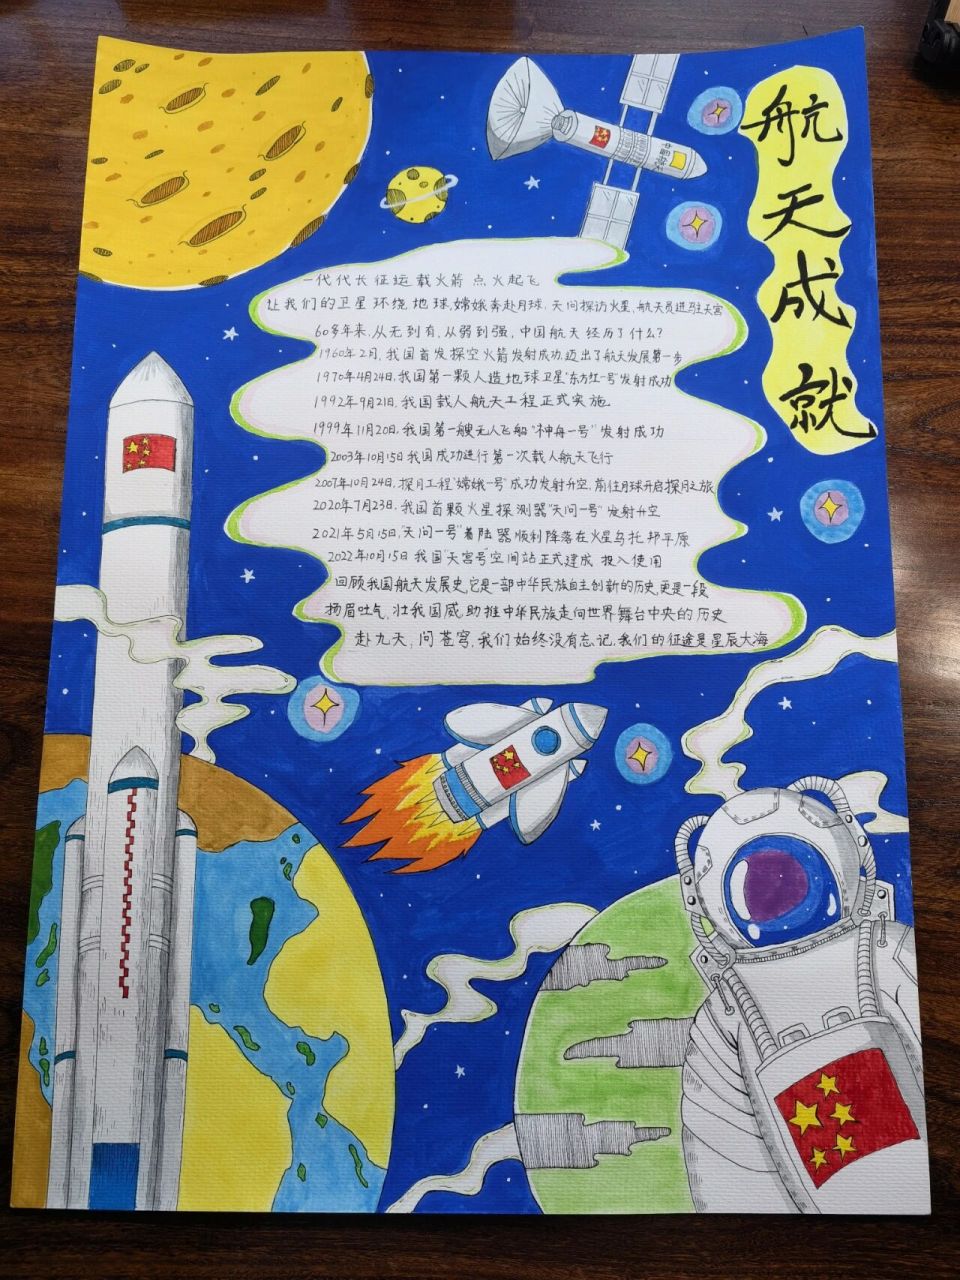 航天成就
一代代长征运载火箭点火起飞
让我们的卫星环绕地球,嫦娥奔赴月球,天问探访火星,航天员进驻天宫
60多年来,从无到有,从弱到强,中国航天经历了什么?
1960年2月,我国首发探空火箭发射成功,迈出了航天发展第一步
1970年4月24日,我国第一颗人造地球卫星"东方红一号"发射成功
1992年9月21日,我国载人航天工程正式实施
1999年11月20日,我国第一艘无人飞船"神舟一号"发射成功
2003年10月15日我国成功进行第一次载人航天飞行
2007年10月24日,探月工程"嫦娥一号"成功发射升空,前往月球开启探月之旅
2020年7月23日,我国首颗火星探测器"天问一号"发射升空
2021年5月15日,"天问一号"着陆器顺利降落在火星乌托邦平原
2022年10月15日我国"天宫号"空间站正式建成投入使用
回顾我国航天发展史,它是一部中华民族自主创新的历史,更是一段
扬眉吐气,壮我国威,助推中华民族走向世界舞台中央的历史
赴九天,问苍穹,我们始终没有忘记,我们的征途是星辰大海